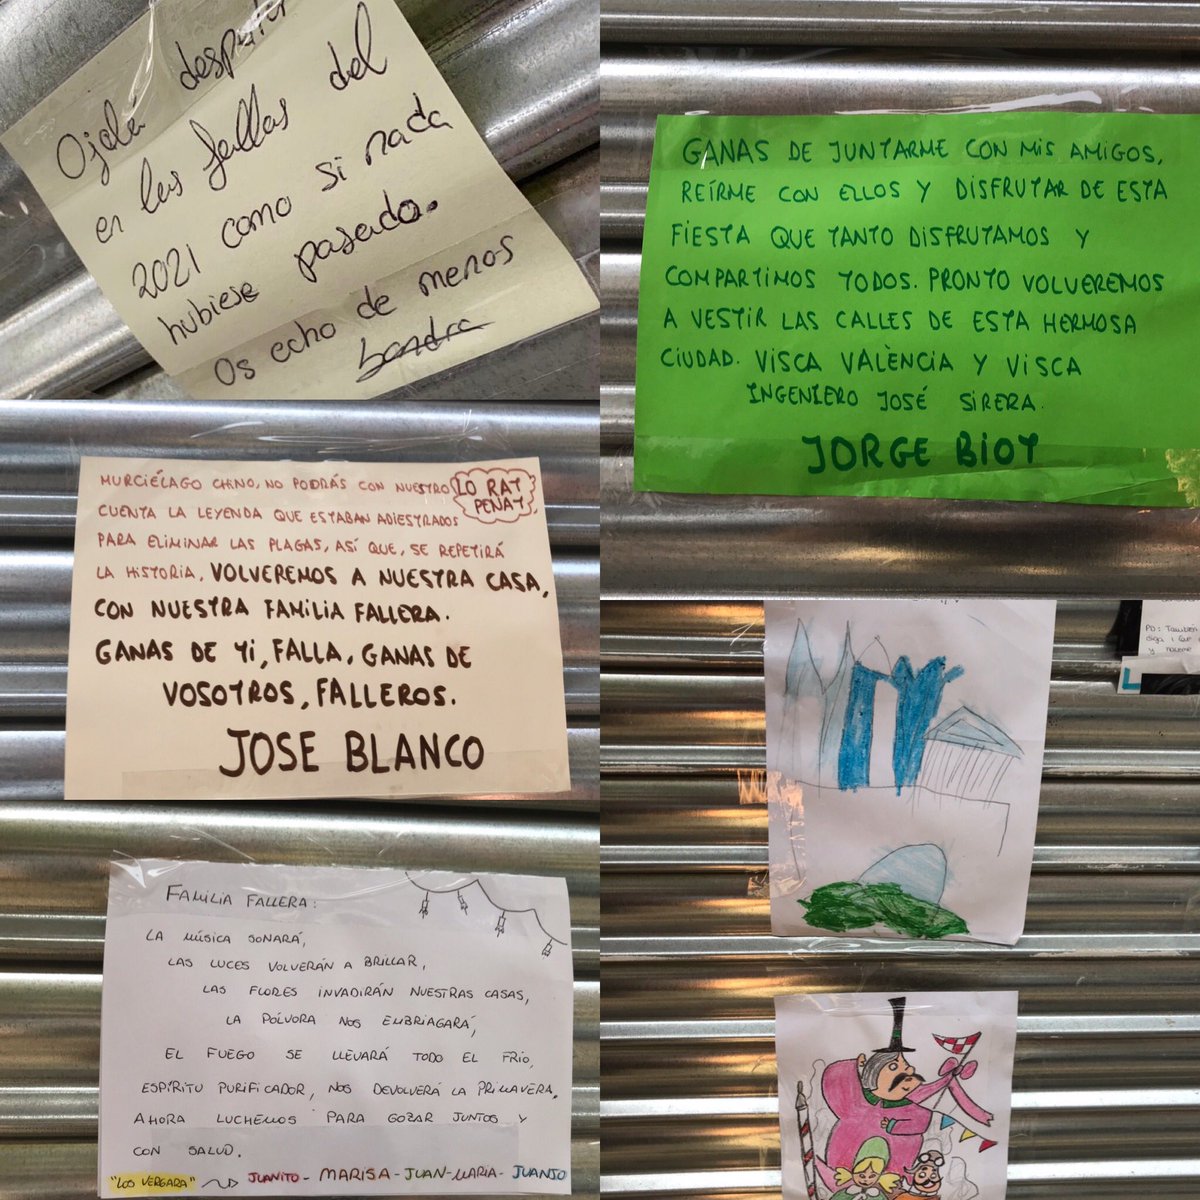 Ojalá despertar
en las fallas del
2021 como si nada
hubiese pasado.
Os echo de menos
GANAS DE JUNTARME CON MIS AMIGOS,
REÍRME CON ELLOS Y DISFRUTAR DE ESTA
FIESTA QUE TANTO DISFRUTAMOS Y
COMPARTIMOS TODOS. PRONTO VOLVEREMOS
A VESTIR LAS CALLES DE ESTA HERMOSA
CIUDAD. VISCA VALÈNCIA Y VISCA
INGENIERO JOSÉ SIRERA.
JORGE BIOT
MURCIÉLAGO CHINO, NO PODRÁS CON NUESTRO LO RAT
PENAT
CUENTA LA LEYENDA QUE ESTABAN ADIESTRADOS
PARA ELIMINAR LAS PLAGAS, ASÍ QUE, SE REPETIRÁ
LA HISTORIA. VOLVEREMOS A NUESTRA CASA,
CON NUESTRA FAMILIA FALLERA.
GANAS DE TI, FALLA, GANAS DE
VOSOTROS, FALLEROS.
JOSE BLANCO
PD: También
y
FAMILIA FALLERA:
LA MÚSICA SONARÁ,
LAS LUCES VOLVERÁN A BRILLAR,
LAS FLORES INVADIRÁN NUESTRAS CASAS,
LA PÓLVORA NOS EMBRIAGARÁ,
EL FUEGO SE LLEVARÁ TODO EL FRÍO,
ESPÍRITU PURIFICADOR, NOS DEVOLVERÁ LA PRIMAVERA.
AHORA LUCHEMOS PARA GOZAR JUNTOS Y
CON SALUD.
"LOS VERGARA" JUANITO - MARISA - JUAN - MARIA - JUANJO